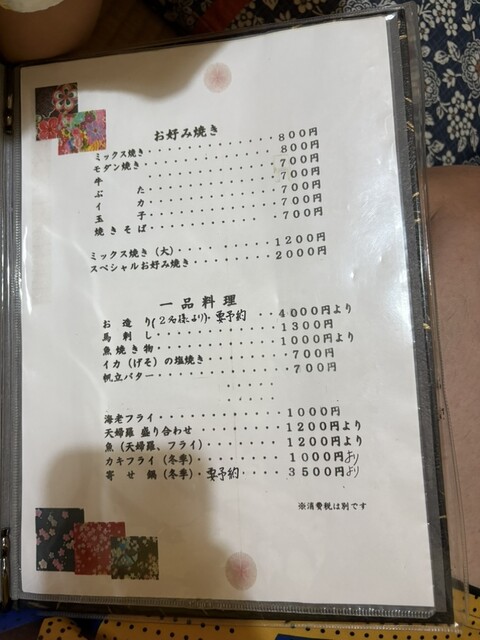 お好み焼き
ミックス焼き・・・・・・・・・・・・・８００円
モダン焼き・・・・・・・・・・・・・・８００円
牛・・・・・・・・・・・・・・７００円
ぶた・・・・・・・・・・・・・７００円
イカ・・・・・・・・・・・・・７００円
玉子・・・・・・・・・・・・・７００円
焼きそば・・・・・・・・・・・７００円
ミックス焼き（大）・・・・・・・・・１２００円
スペシャルお好み焼き・・・・・・・・２０００円
一品料理
お造り(２名様より)・要予約・・４０００円より
馬刺し・・・・・・・・・・・・１３００円
魚焼き物・・・・・・・・・・・１０００円より
イカ（げそ）の塩焼き・・・・・・７００円
帆立バター・・・・・・・・・・・７００円
・・・・
・・・・
海老フライ・・・・・・・・・・・１０００円
天婦羅 盛り合わせ・・・・・・・・１２００円より
魚（天婦羅、フライ）・・・・・・・１２００円より
カキフライ（冬季）・・・・・・・・１０００円より
寄せ鍋（冬季）・要予約・・・・３５００円より
※消費税は別です